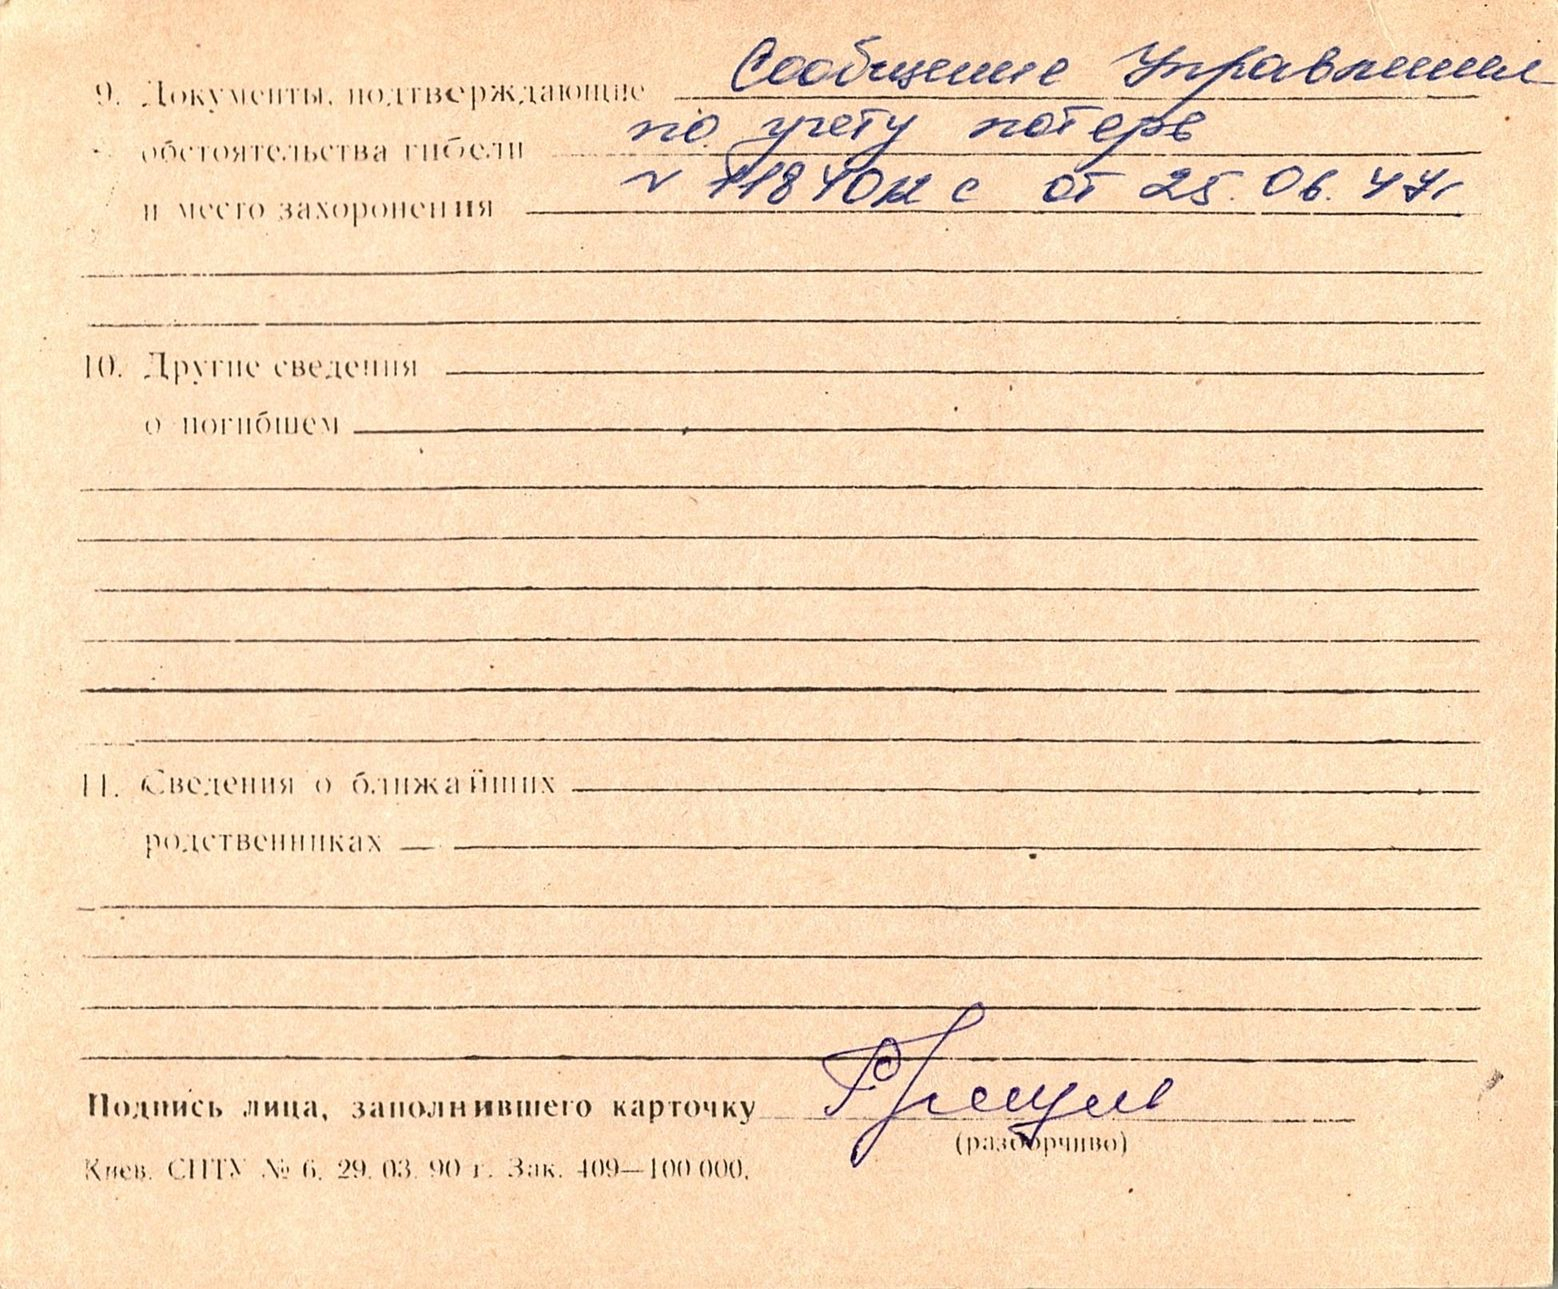 9. Документы, подтверждающие Сообщение Управления
обстоятельства гибели по учету потерь
и место захоронения № 11840 с от 25.06.47г
10. Другие сведения
о погибшем
11. Сведения о ближайших
родственниках
Подпись лица, заполнившего карточку
(разборчиво)
Киев. СПТУ № 6. 29. 03. 90 г. Зак. 409—100 000.